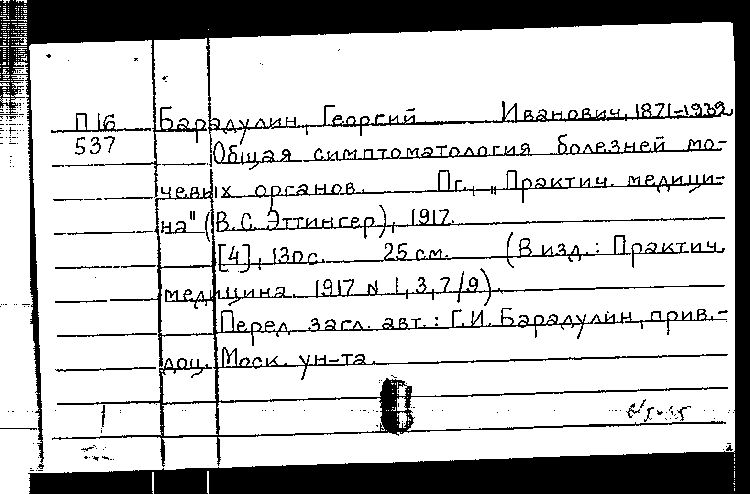 П 16 Барадулин, Георгий Иванович, 1871-1932
537 Общая симптоматология болезней мо-
чевых органов. Пг., „Практич. медици-
на" (В.С. Эттингер), 1917.
[4], 130 с. 25 см. (В изд.: Практич.
медицина. 1917 N 1, 3, 7/9).
Перед загл. авт.: Г.И. Барадулин, прив.-
доц. Моск. ун-та.